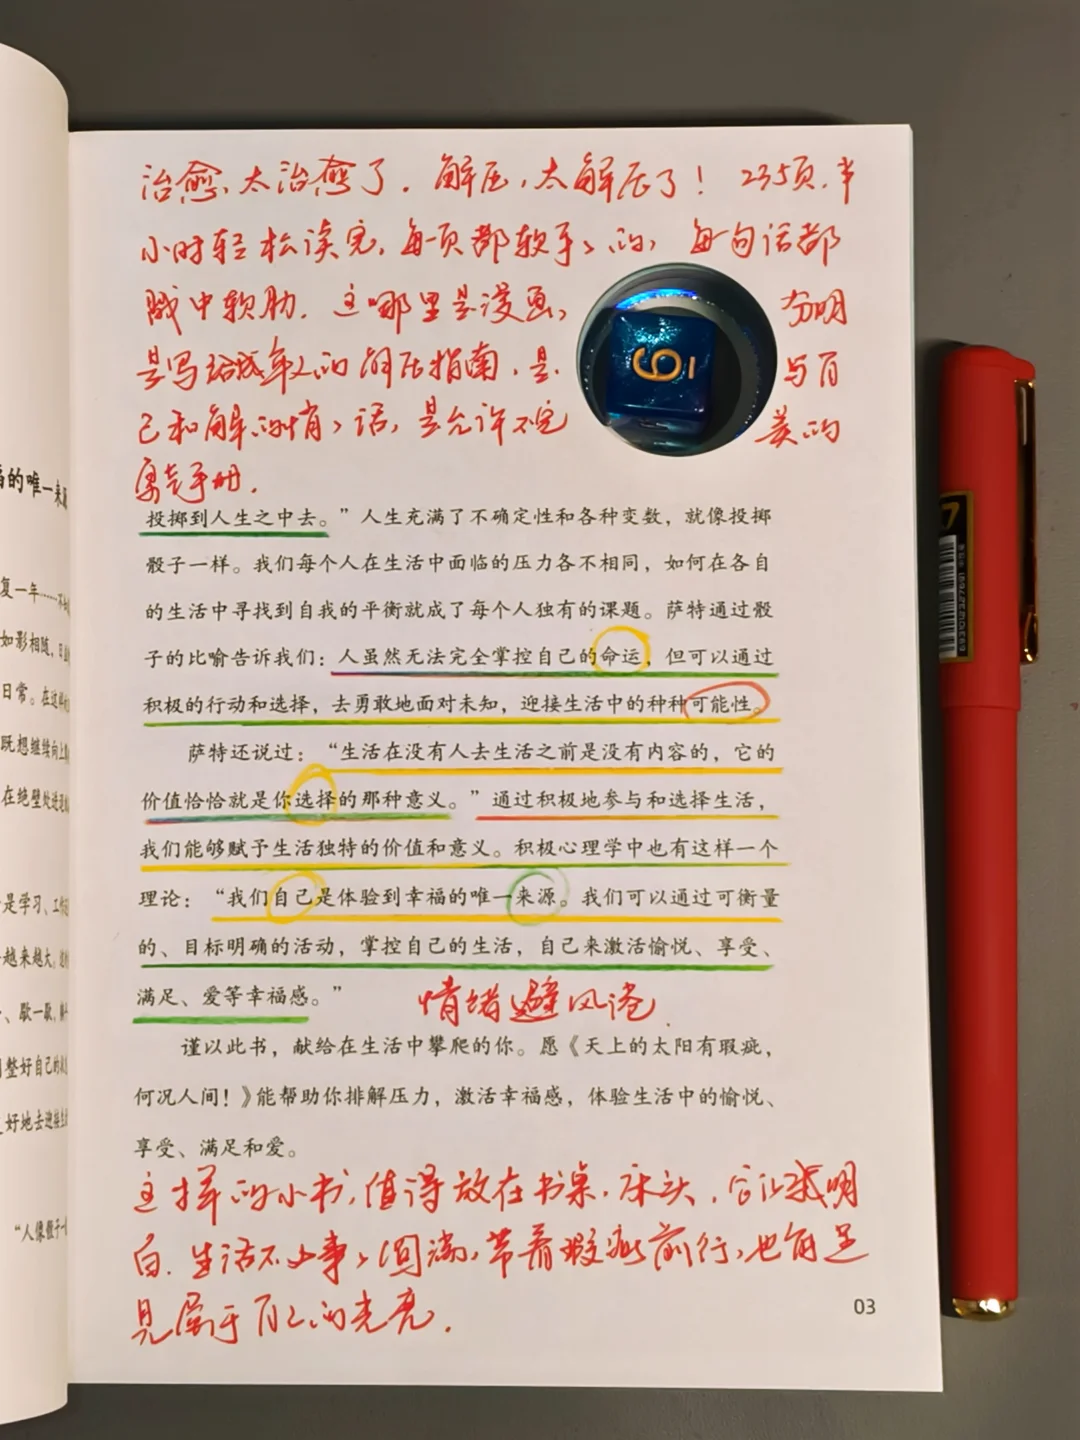 治愈，太治愈了。解压，太解压了！235页，半
小时轻松读完，每一页都软乎乎的，每句话都
戳中软肋。这哪里是漫画，分明
是写给成年人的解压指南，是与自
己和解的悄悄话，是允许不完美的
勇气手册。
投掷到人生之中去。”人生充满了不确定性和各种变数，就像投掷
骰子一样。我们每个人在生活中面临的压力各不相同，如何在各自
的生活中寻找到自我的平衡就成了每个人独有的课题。萨特通过骰
子的比喻告诉我们：人虽然无法完全掌控自己的命运，但可以通过
积极的行动和选择，去勇敢地面对未知，迎接生活中的种种可能性。
萨特还说过：“生活在没有人去生活之前是没有内容的，它的
价值恰恰就是你选择的那种意义。”通过积极地参与和选择生活，
我们能够赋予生活独特的价值和意义。积极心理学中也有这样一个
理论：“我们自己是体验到幸福的唯一来源。我们可以通过可衡量
的、目标明确的活动，掌控自己的生活，自己来激活愉悦、享受、
满足、爱等幸福感。”
情绪避风港
谨以此书，献给在生活中攀爬的你。愿《天上的太阳有瑕疵，
何况人间！》能帮助你排解压力，激活幸福感，体验生活中的愉悦、
享受、满足和爱。
这样的小书，值得放在书桌，床头，它让我明
白，生活不必事事圆满，带着瑕疵前行，也能遇
见属于自己的光亮。
03
的唯一来源
复一年……
如影相随，
日常。在这
既想继续向上
在绝壁处
是学习、工作
越来越大。
、歇一歇，
整好自己的
好地去迎接
“人像骰子一
6